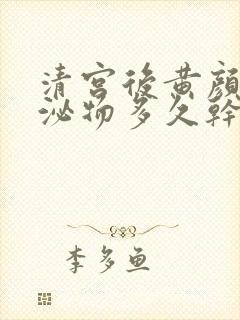 清宫后黄颜
泌物多久幹
李多鱼